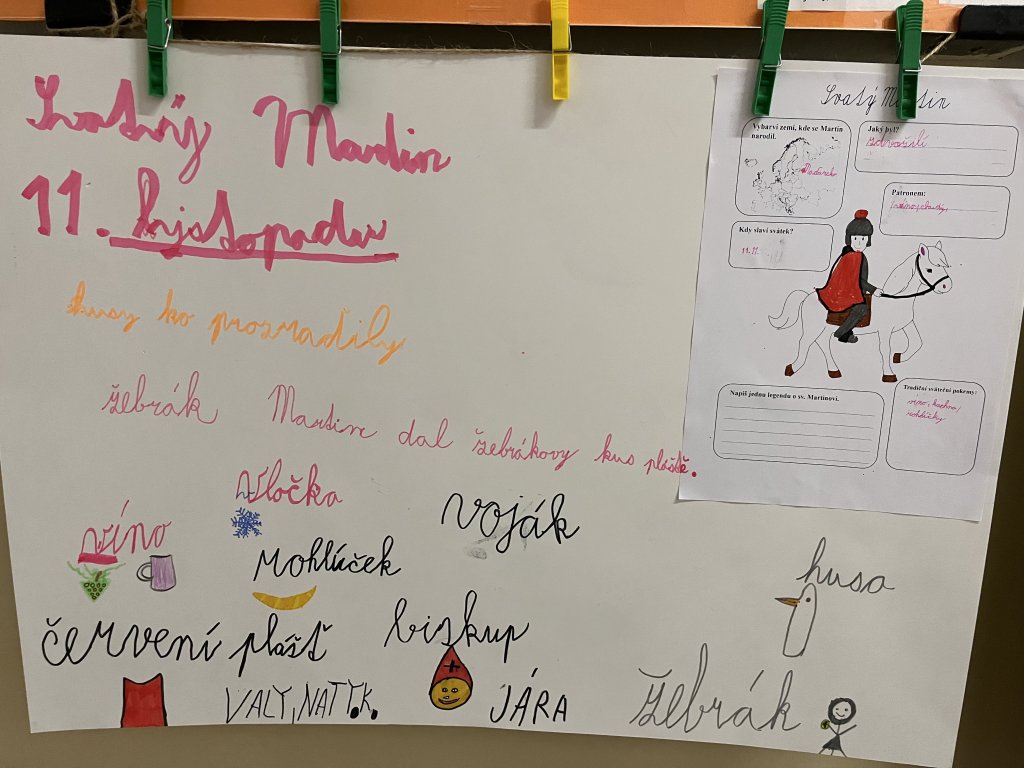 Svatý Martin
11. listopadu
husy ho prozradily
žebrák Martin dal žebrákovy kus pláště.
vločka
víno
voják
Rohlíček
červení plášť
biskup
husa
VALY, NATY.K.
JÁRA
žebrák
Svatý Martin
Vybarvi zemi, kde se Martin narodil.
Maďarsko
Jaký byl?
Patronem:
Kdy slaví svátek?
11.11.
Napiš jednu legendu o sv. Martinovi.
Tradiční sváteční pokrmy:
víno, kachna,
rohlíčky